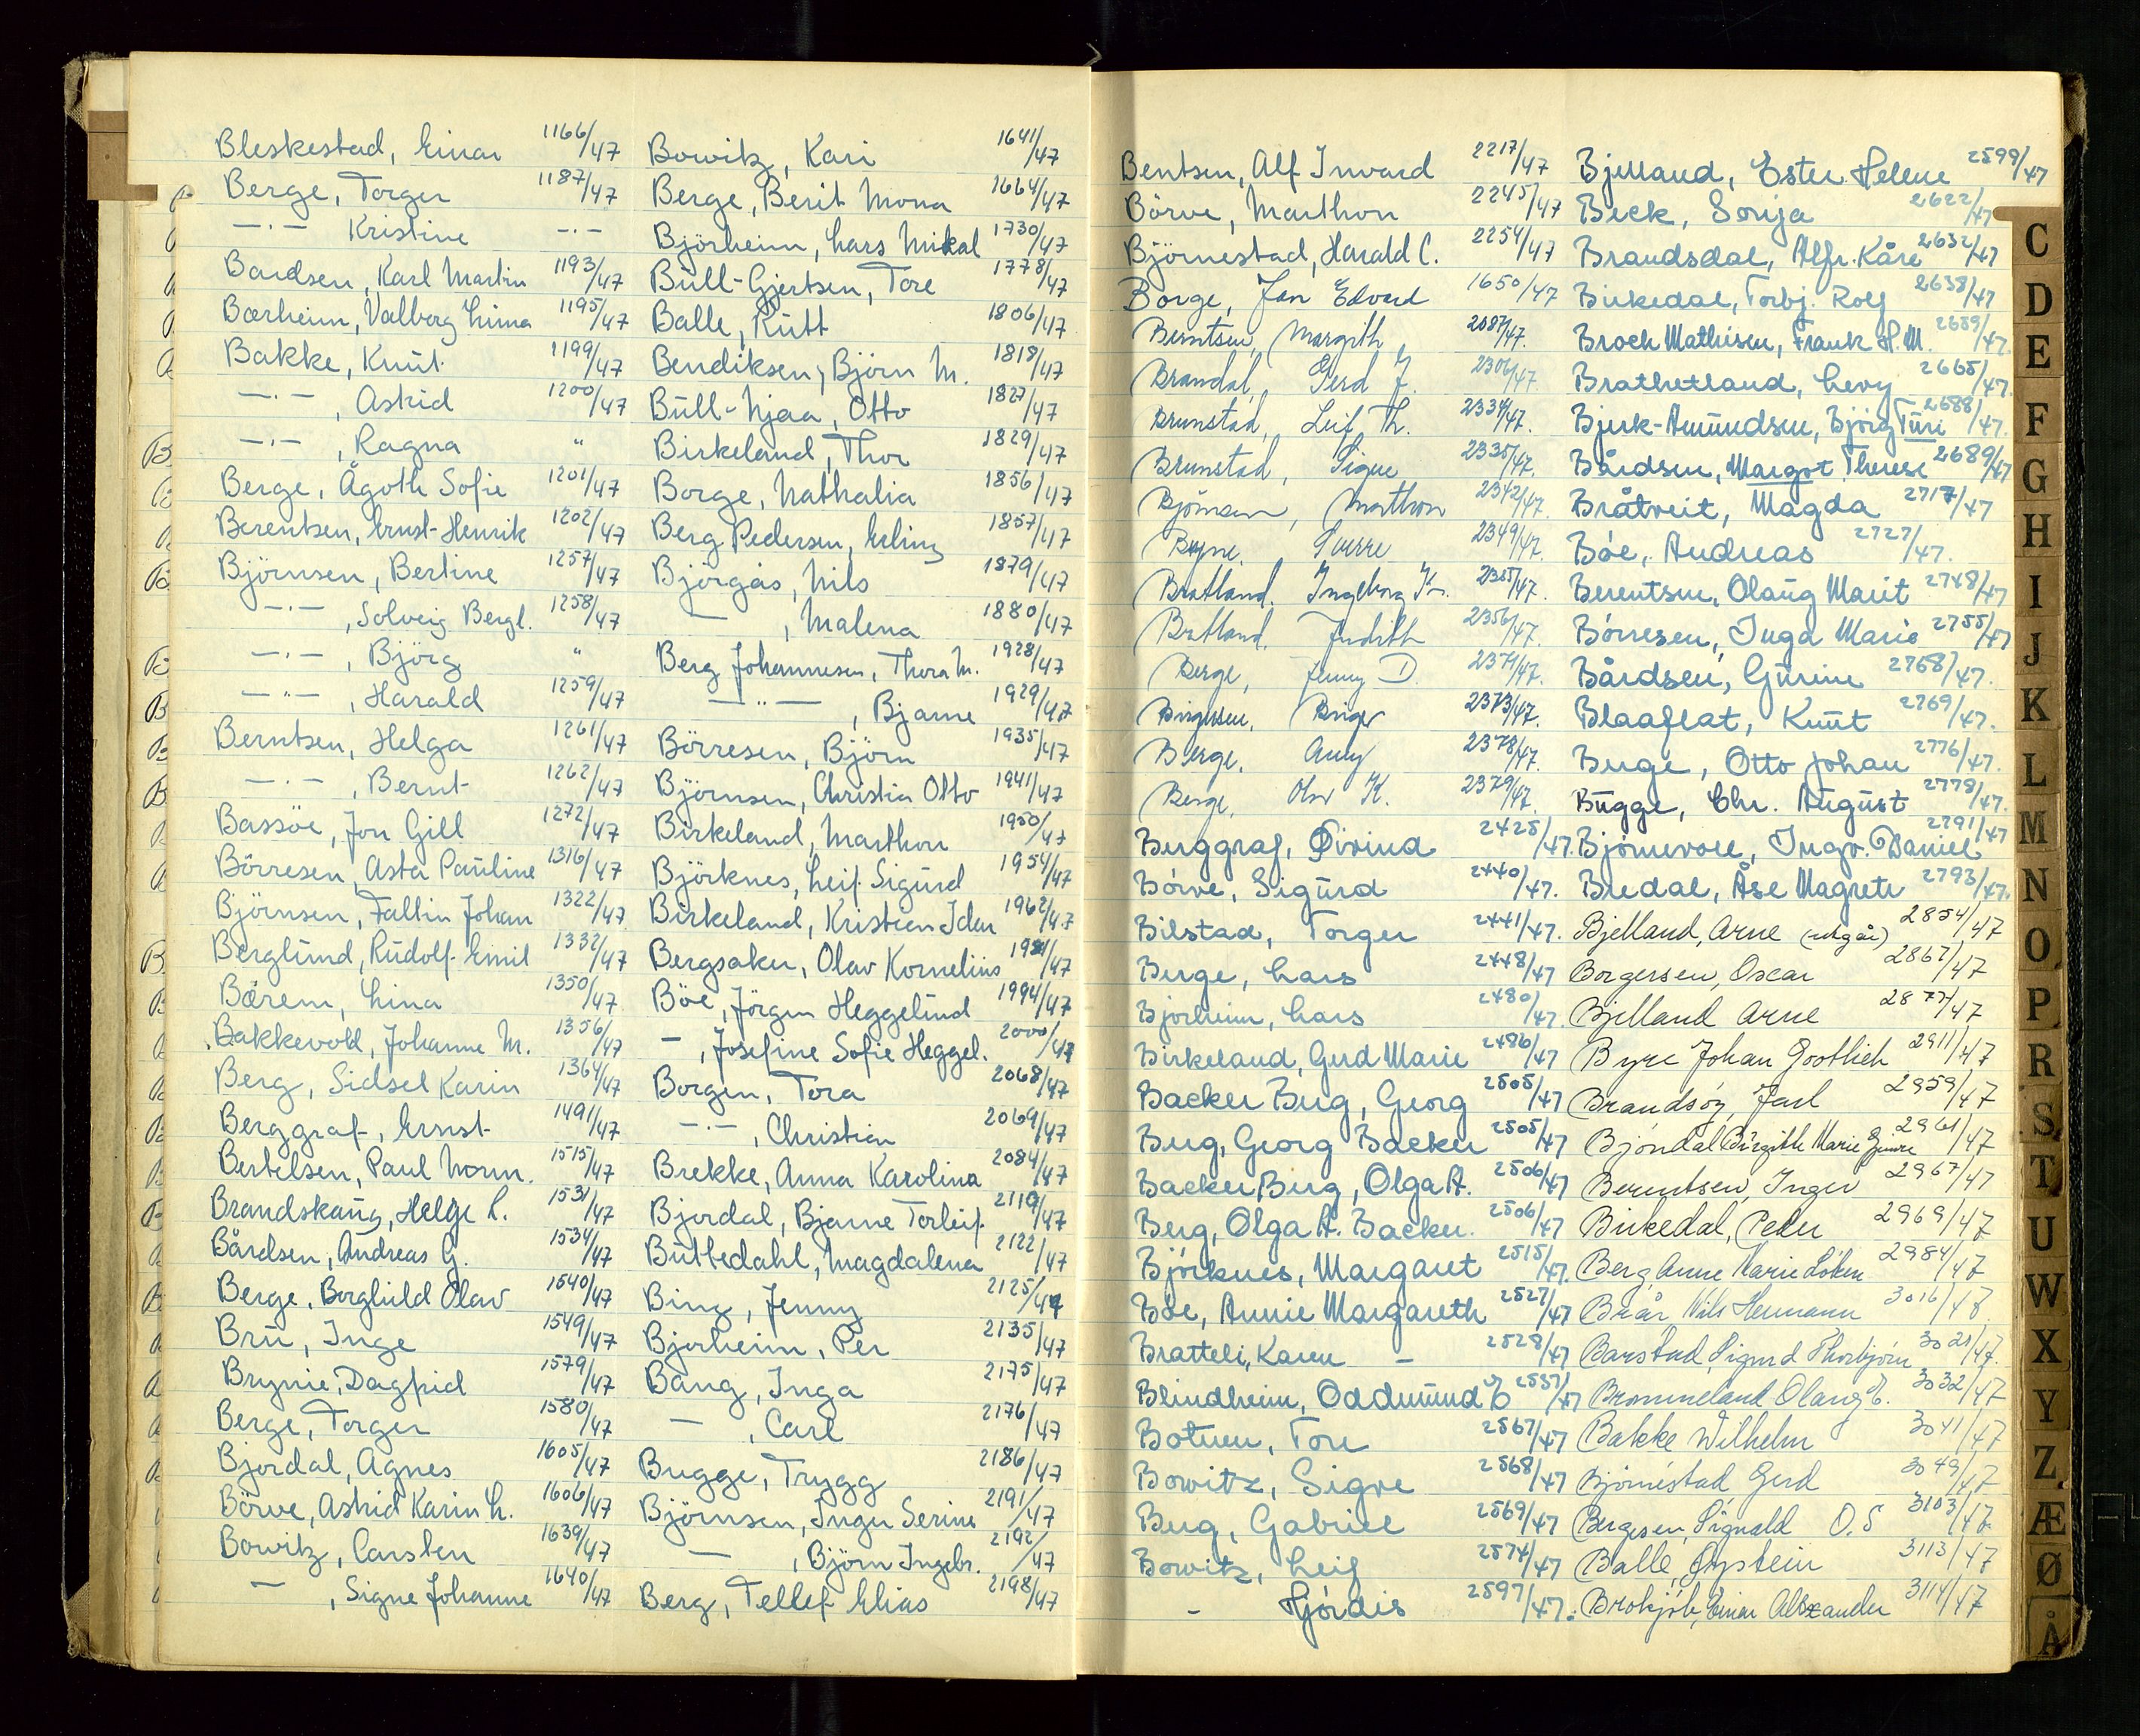 Bleskestad, Einar 1166/47
Berge, Torger 1187/47
—·— Kristine —·—
Bardsen, Karl Martin 1193/47
Bærheim, Valberg Lima 1195/47
Bakke, Knut 1199/47
—·—, Astrid 1200/47
—·—, Ragna "
Berge, Ågoth Sofie 1201/47
Berentsen, Ernst-Henrik 1202/47
Björnsen, Bertine 1257/47
—·—, Solveig Bergl. 1258/47
—·—, Björg "
—·—, Harald 1259/47
Berntsen, Helga 1261/47
—·—, Bernt 1262/47
Bassöe, Jon Gill 1272/47
Börresen, Asta Pauline 1316/47
Björnsen, Fallin Johan 1322/47
Berglund, Rudolf Emil 1332/47
Bærem, Lina 1350/47
Bakkevold, Johanne M. 1356/47
Berg, Sidsel Karin 1364/47
Berggraf, Ernst 1491/47
Bertelsen, Paul Norm. 1515/47
Brandskaug, Helge L. 1531/47
Bårdsen, Andreas G. 1534/47
Berge, Borghild Olav 1540/47
Bru, Inge 1549/47
Brynie, Dagfrid 1579/47
Berge, Torger 1580/47
Bjordal, Agnes 1605/47
Börve, Astrid Karin L. 1606/47
Bowitz, Carsten 1639/47
—, Signe Johanne 1640/47
Bowitz, Kari 1641/47
Berge, Berit Mona 1664/47
Björheim, Lars Mikal 1730/47
Bull-Gjertsen, Tore 1778/47
Balle, Rutt 1806/47
Bendiksen, Björn M. 1818/47
Bull-Njaa, Otto 1827/47
Birkeland, Thor 1829/47
Borge, Nathalia 1856/47
Berg Pedersen, Erling 1857/47
Björgås, Nils 1879/47
—, Malena 1880/47
Berg Johannesen, Thora M. 1928/47
—"—, Bjarne 1929/47
Börresen, Björn 1935/47
Björnsen, Christia Otto 1941/47
Birkeland, Marthon 1950/47
Björknes, Leif Sigurd 1954/47
Birkeland, Kristian Idar 1962/47
Bergsaker, Olav Kornelius 1981/47
Böe, Jörgen Heggelund 1994/47
—, Josefine Sofie Heggel. 2000/47
Borgen, Tora 2068/47
—·—, Christian 2069/47
Brekke, Anna Karolina 2084/47
Bjordal, Bjarne Torleif 2119/47
Buttedahl, Magdalena 2122/47
Bing, Jenny 2125/47
Bjorheim, Per 2135/47
Bang, Inga 2175/47
—, Carl 2176/47
Bugge, Trygg 2186/47
Björnsen, Inger Serine 2191/47
—, Björn Ingebr. 2192/47
Berg, Tellef Elias 2198/47
Bentsen, Alf Invard 2217/47
Börve, Marthon 2245/47
Björnestad, Harald C. 2254/47
Borge, Jan Edvard 1650/47
Berntsen, Margith 2087/47.
Brandal, Gerd J. 2306/47.
Brunstad, Leif Th. 2334/47.
Brunstad, Signe 2335/47.
Björnsen, Marthon 2342/47.
Bryne, Sverre 2349/47.
Bratland, Ingeborg K. 2355/47.
Bratland, Judith 2356/47.
Berge, Jenny D. 2371/47.
Birgersen, Birger 2373/47.
Berge, Anny 2378/47.
Berge, Olav K. 2379/47.
Berggraf, Øivind 2425/47.
Börve, Sigurd 2440/47.
Bilstad, Torger 2441/47.
Berge, Lars 2448/47
Bjorheim, Lars 2480/47.
Birkeland, Gerd Marie 2486/47
Backer Berg, Georg 2505/47
Berg, Georg Backer 2505/47
Backer Berg, Olga A. 2506/47
Berg, Olga A. Backer. 2506/47
Björknes, Margaret 2515/47.
Böe, Annie Margareth 2527/47
Bratteli, Karen — 2528/47
Blindheim, Oddmund 2537/47
Botnen, Tore 2567/47
Bowitz, Sigve 2568/47
Berg, Gabriel 2569/47
Bowitz, Leif 2574/47
- Hjördis 2597/47.
Bjelland, Ester Helene 2599/47
Beck, Sonja 2622/47
Brandsdal, Alfr. Kåre 2632/47
Birkedal, Torbj. Rolf 2638/47
Broch Mathisen, Frank H. M. 2659/47.
Brathetland, Levy 2665/47.
Bjerk-Amundsen, Björg Turi 2688/47.
Bårdsen, Margot Therese 2689/47
Bråtveit, Magda 2717/47
Böe, Andreas 2727/47.
Berentsen, Olaug Marit 2748/47
Börresen, Inga Marie 2755/47
Bårdsen, Gurine 2768/47.
Blaaflat, Knut 2769/47.
Berge, Otto Johan 2776/47.
Bugge, Chr. August 2778/47.
Björnevoll, Ingv. Daniel 2791/47
Bredal, Åse Magrete 2793/47.
Bjelland, Arne (utgår) 2854/47
Borgersen, Oscar 2867/47
Bjelland Arne 2877/47
Byre Johan Gootlieb 2911/47
Brandsöy, Jarl 2959/47
Bjöndal Birgith Marie Gjmre 2961/47
Berentsen, Inger 2967/47
Birkedal, Peder 2969/47
Berg Anne Marie Löken 2984/47
Brår Nils Hermann 3016/48
Barstad Sigurd Thorbjörn 3021/47.
Brommeland Olaug E. 3032/47
Bakke Wilhelm 3041/47
Björnestad Gerd 3049/47
Bergesen, Sigvald O.S 3103/47
Balle, Øystein 3113/47
Brokjöb, Einar Alexander 3114/47
C
D
E
F
G
H
I
J
K
L
M
N
O
P
R
S
T
U
W
X
Y
Z
Æ
Ø
Å